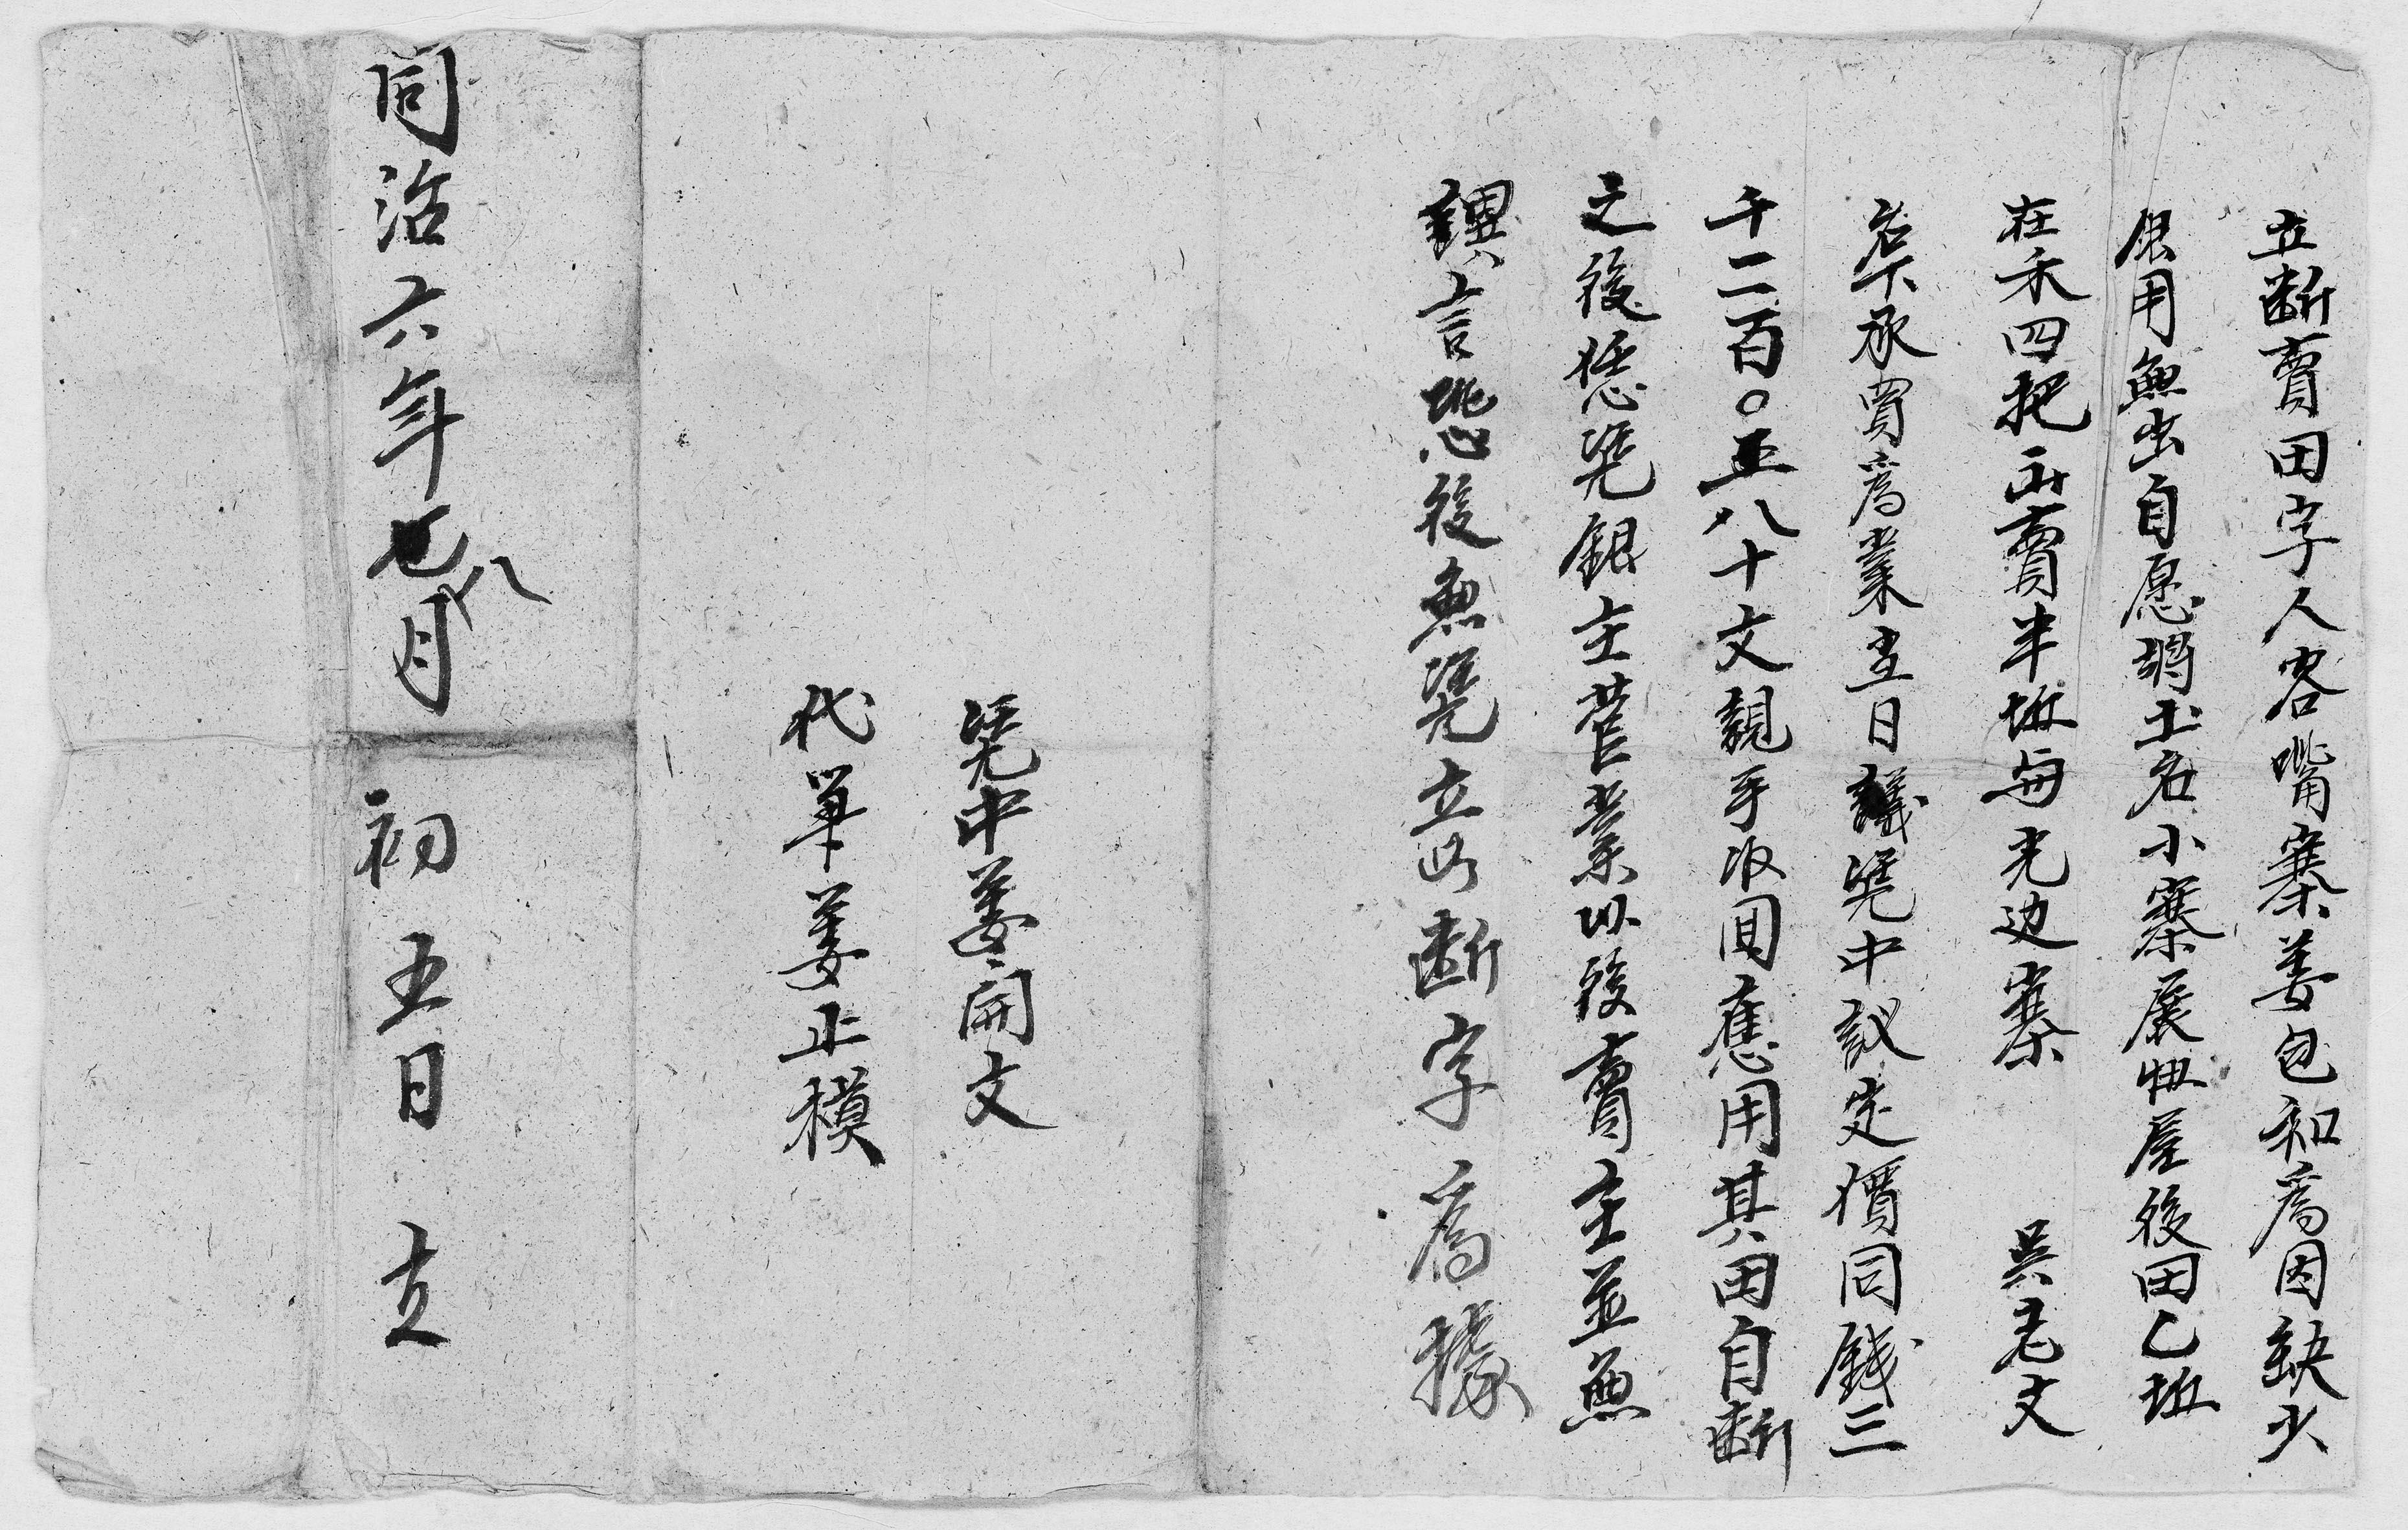 立断賣田字人客嘴寨姜包和爲因缺少
銀用無出自愿將土名小寨展牛丑屋後田乙坵
在禾四把出賣半坵与光边寨 吳老文
名下承買爲業当日議凴中議定價同錢三
千二百〇五八十文親手收回應用其田自断
之後恁凴銀主菅業以後賣主並無
異言恐後無凴立此断字爲據
凴中姜開文
代筆姜正模
同治六年七八月初五日 立